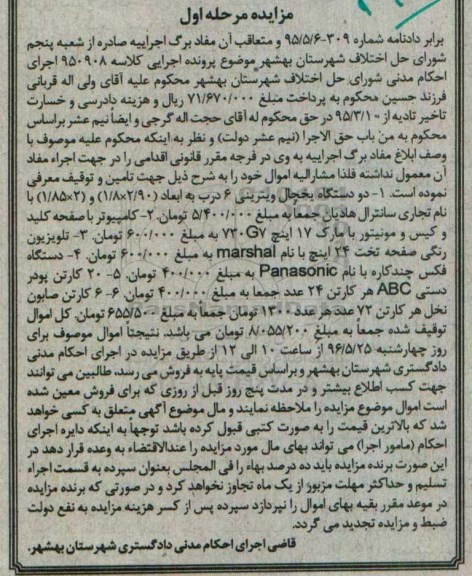 مزایده مرحله اول
برابر دادنامه شماره ۳۰۹-۹۵/۵/۶ و متعاقب آن مفاد برگ اجراییه صادره از شعبه پنجم
شورای حل اختلاف شهرستان بهشهر موضوع پرونده اجرایی کلاسه ۹۵۰۹۰۸ اجرای
احکام مدنی شورای حل اختلاف شهرستان بهشهر محکوم علیه آقای ولی اله قربانی
فرزند حسین محکوم به پرداخت مبلغ ۷۱/۶۷۰/۰۰۰ ریال و هزینه دادرسی و خسارت
تاخیر تادیه از ۹۵/۳/۱۰ در حق محکوم له آقای حجت اله گرجی و ایضا نیم عشر براساس
محکوم به من باب حق الاجرا (نیم عشر دولت) و نظر به اینکه محکوم علیه موصوف با
وصف ابلاغ مفاد برگ اجراییه به وی در فرجه مقرر قانونی اقدامی را در جهت اجراء مفاد
آن معمول نداشته فلذا مشارالیه اموال خود را به شرح ذیل جهت تامین و توقیف معرفی
نموده است. ۱- دو دستگاه یخچال ویترینی ۶ درب به ابعاد (۲/۹۰×۱/۸) و (۲×۱/۸۵) با
نام تجاری سانترال هادیان جمعا به مبلغ ۵/۴۰۰/۰۰۰ تومان. ۲- کامپیوتر با صفحه کلید
و کیس و مونیتور با مارک ۱۷ اینچ ۷۳۰G۷ به مبلغ ۶۰۰/۰۰۰ تومان. ۳- تلویزیون
رنگی صفحه تخت ۲۴ اینچ با نام marshal به مبلغ ۶۰۰/۰۰۰ تومان. ۴- دستگاه
فکس چندکاره با نام Panasonic به مبلغ ۴۰۰/۰۰۰ تومان. ۵- ۲۰ کارتن پودر
دستی ABC هر کارتن ۲۴ عدد جمعا به مبلغ ۴۰۰/۰۰۰ تومان. ۶- ۶ کارتن صابون
نخل هر کارتن ۷۲ عدد هر عدد ۱۳۰۰ تومان جمعاً به مبلغ ۶۵۵/۵۰۰ تومان. کل اموال
توقیف شده جمعاً به مبلغ ۸/۰۵۵/۲۰۰ تومان می باشد. نتیجتاً اموال موصوف برای
روز چهارشنبه ۹۶/۵/۲۵ از ساعت ۱۰ الی ۱۲ از طریق مزایده در اجرای احکام مدنی
دادگستری شهرستان بهشهر و براساس قیمت پایه به فروش می رسد، طالبین می توانند
جهت کسب اطلاع بیشتر و در مدت پنج روز قبل از روزی که برای فروش معین شده
است اموال موضوع مزایده را ملاحظه نمایند و مال موضوع آگهی متعلق به کسی خواهد
شد که بالاترین قیمت را به صورت کتبی قبول کرده باشد توجهاً به اینکه دایره اجرای
احکام (مامور اجرا) می تواند بهای مال مورد مزایده را عندالاقتضاء به وعده قرار دهد در
این صورت برنده مزایده باید ده درصد بهاء را فی المجلس بعنوان سپرده به قسمت اجراء
تسلیم و حداکثر مهلت مزبور از یک ماه تجاوز نخواهد کرد و در صورتی که برنده مزایده
در موعد مقرر بقیه بهای اموال را نپردازد سپرده پس از کسر هزینه مزایده به نفع دولت
ضبط و مزایده تجدید می گردد.
قاضی اجرای احکام مدنی دادگستری شهرستان بهشهر.